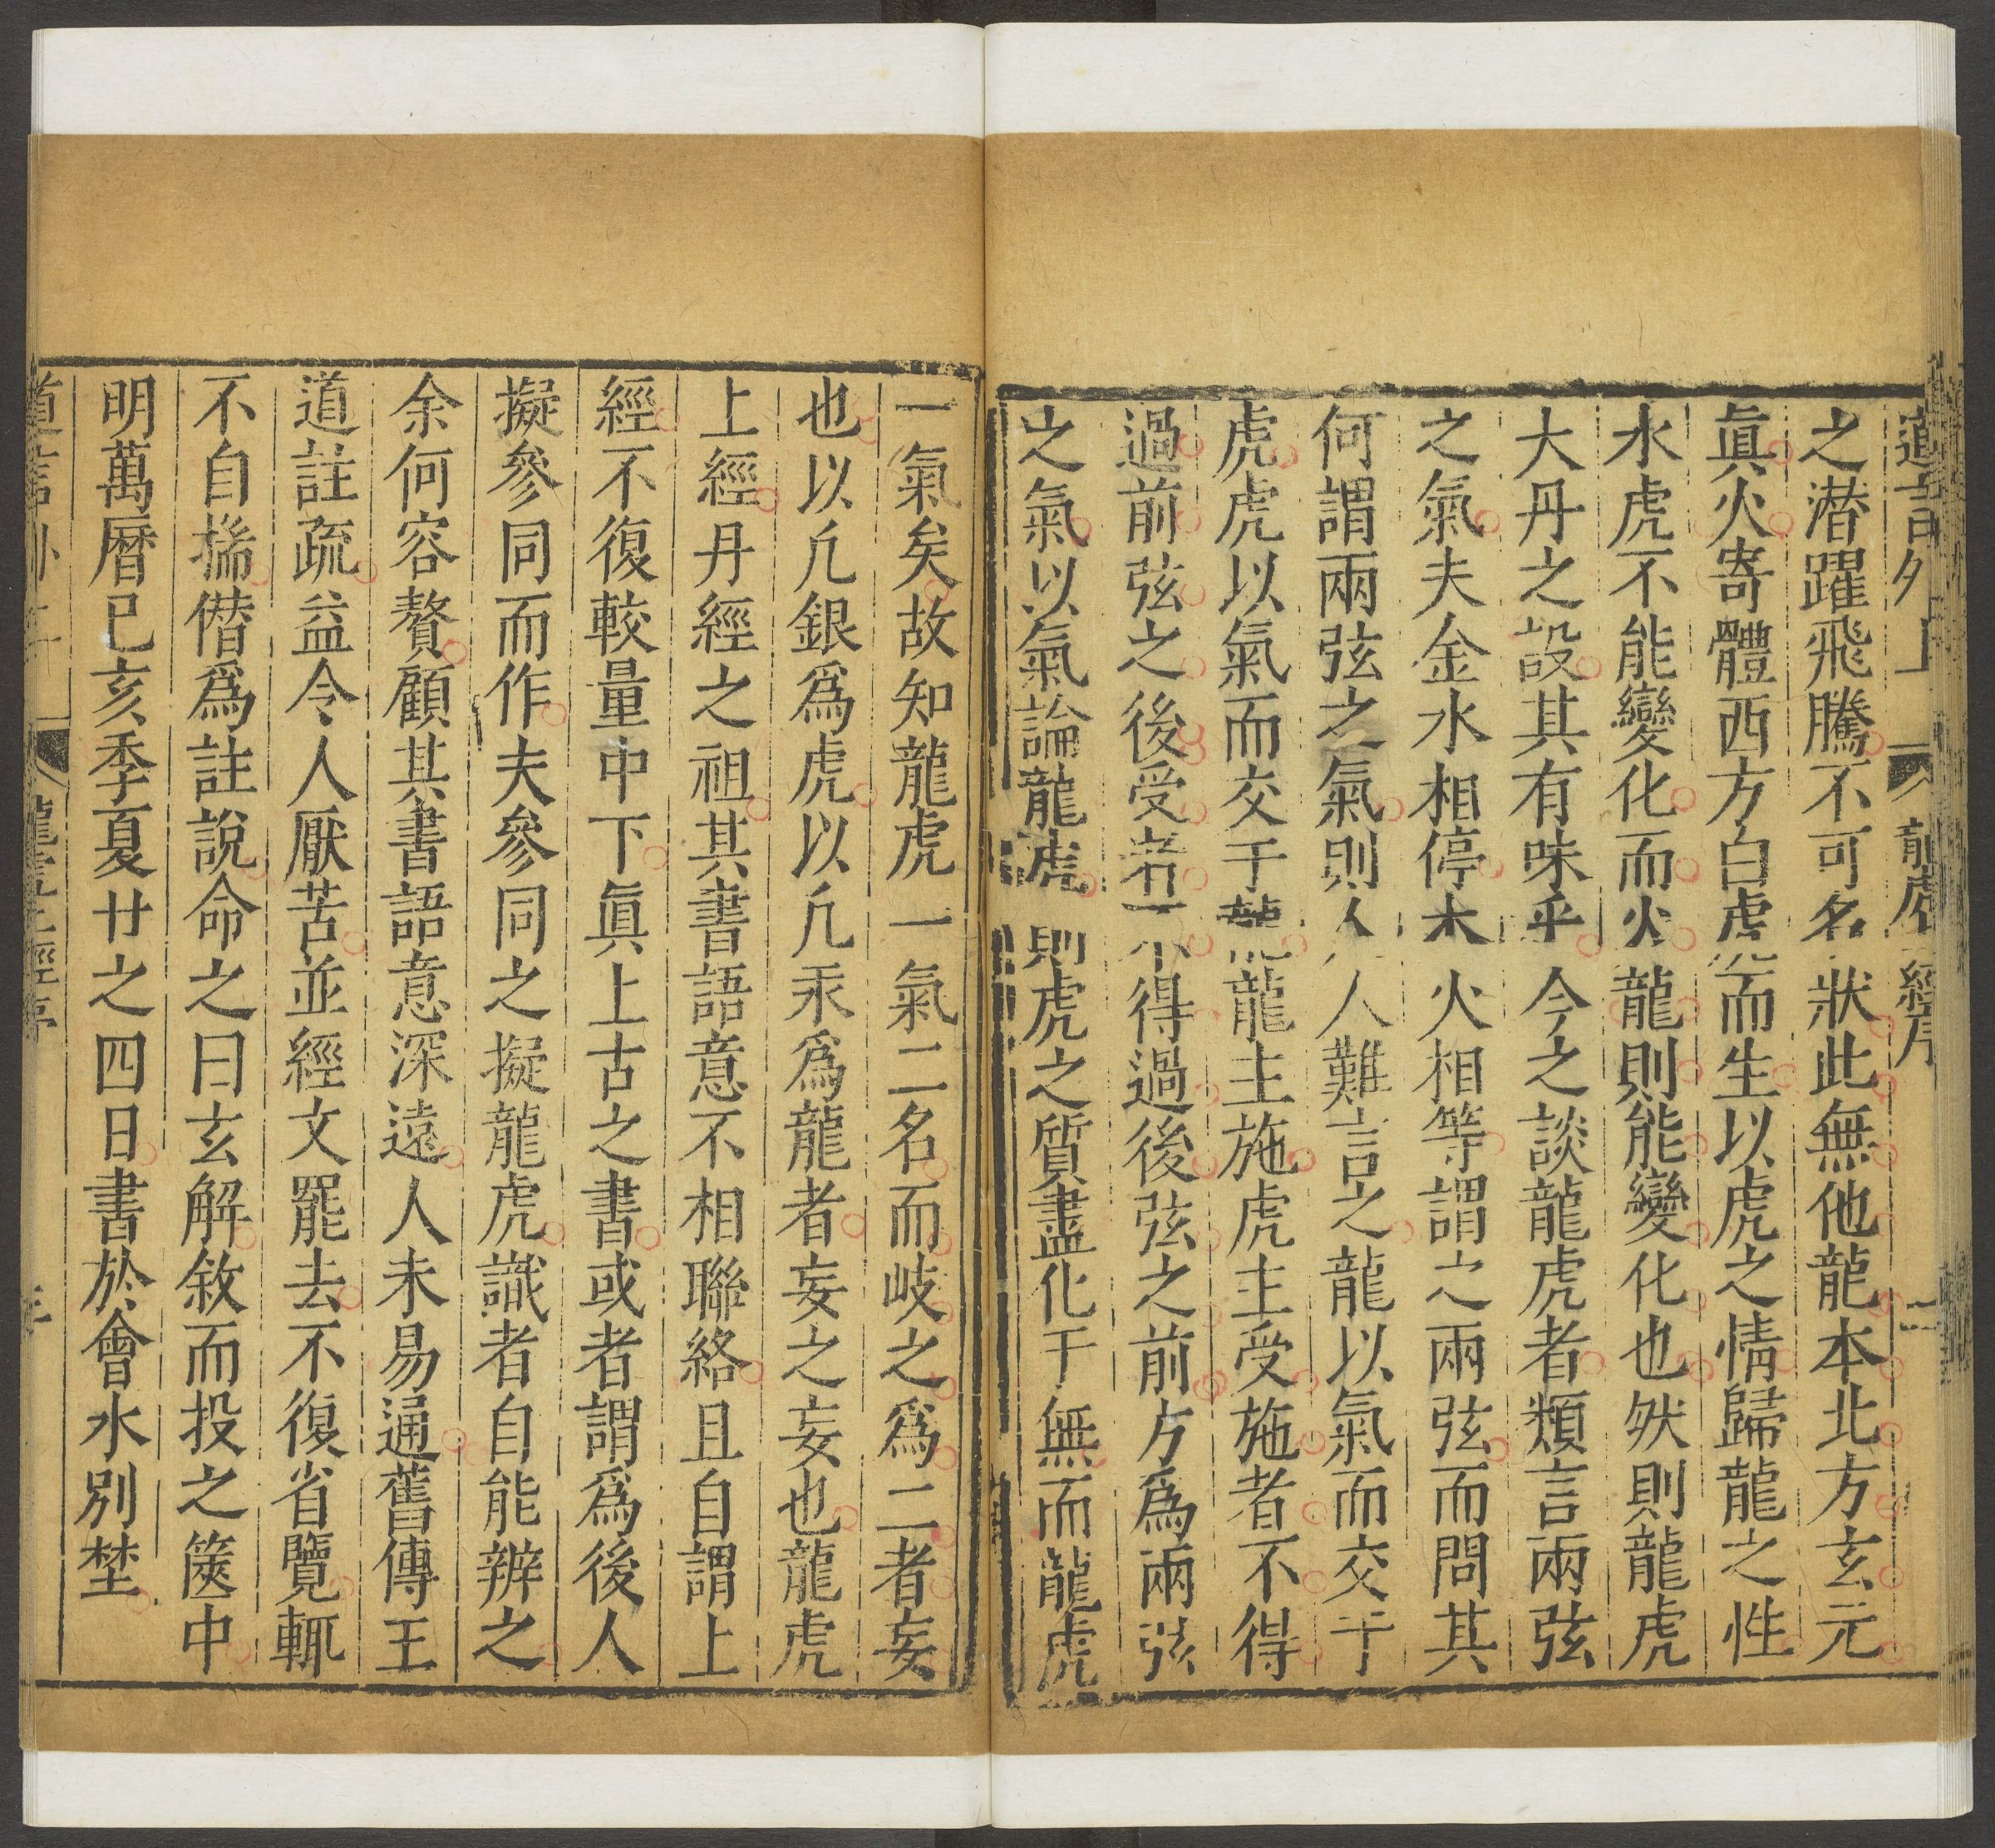 道言外 上 龍虎經序 二
之潜躍飛騰不可名狀此無他龍本北方玄元
眞火寄體西方白虎而生以虎之情歸龍之性
水虎不能變化而火龍則能變化也然則龍虎
大丹之設其有味乎今之談龍虎者類言兩弦
之氣夫金水相停木火相等謂之兩弦而問其
何謂兩弦之氣則人人難言之龍以氣而交于
虎虎以氣而交于龍龍主施虎主受施者不得
過前弦之後受者不得過後弦之前方爲兩弦
之氣以氣論龍虎則虎之質盡化于無而龍虎
一氣矣故知龍虎一氣二名而岐之爲二者妄
也以凢銀爲虎以凢汞爲龍者妄之妄也龍虎
上經丹經之祖其書語意不相聯絡且自謂上
經不復較量中下眞上古之書或者謂爲後人
擬參同而作夫參同之擬龍虎識者自能辨之
余何容贅顧其書語意深遠人未易通舊傳王
道註疏益令人厭苦並經文罷去不復省覽輒
不自揣僣爲註說命之曰玄解敘而投之篋中
明萬曆已亥季夏廿之四日書於會水別埜
道言外 龍虎上經序 三